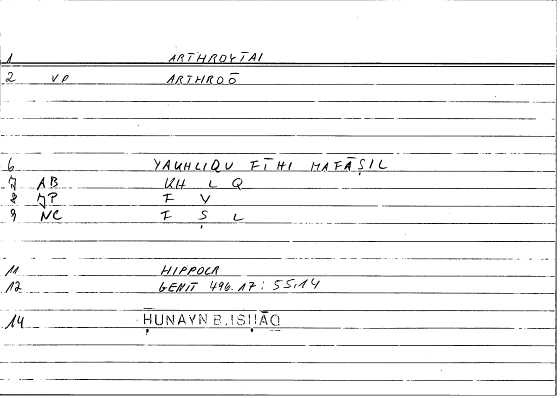 1 ARTHROYTAI
2 VP ARTHROŌ
6 YAUHLIQU FĪHI MAFĀṢIL
7 AB UH L Q
8 NP F V
9 NC F Ṣ L
11 HIPPOCR
12 GENIT 496.17 : 55,14
14 ḤUNAYN B. ISḤĀQ